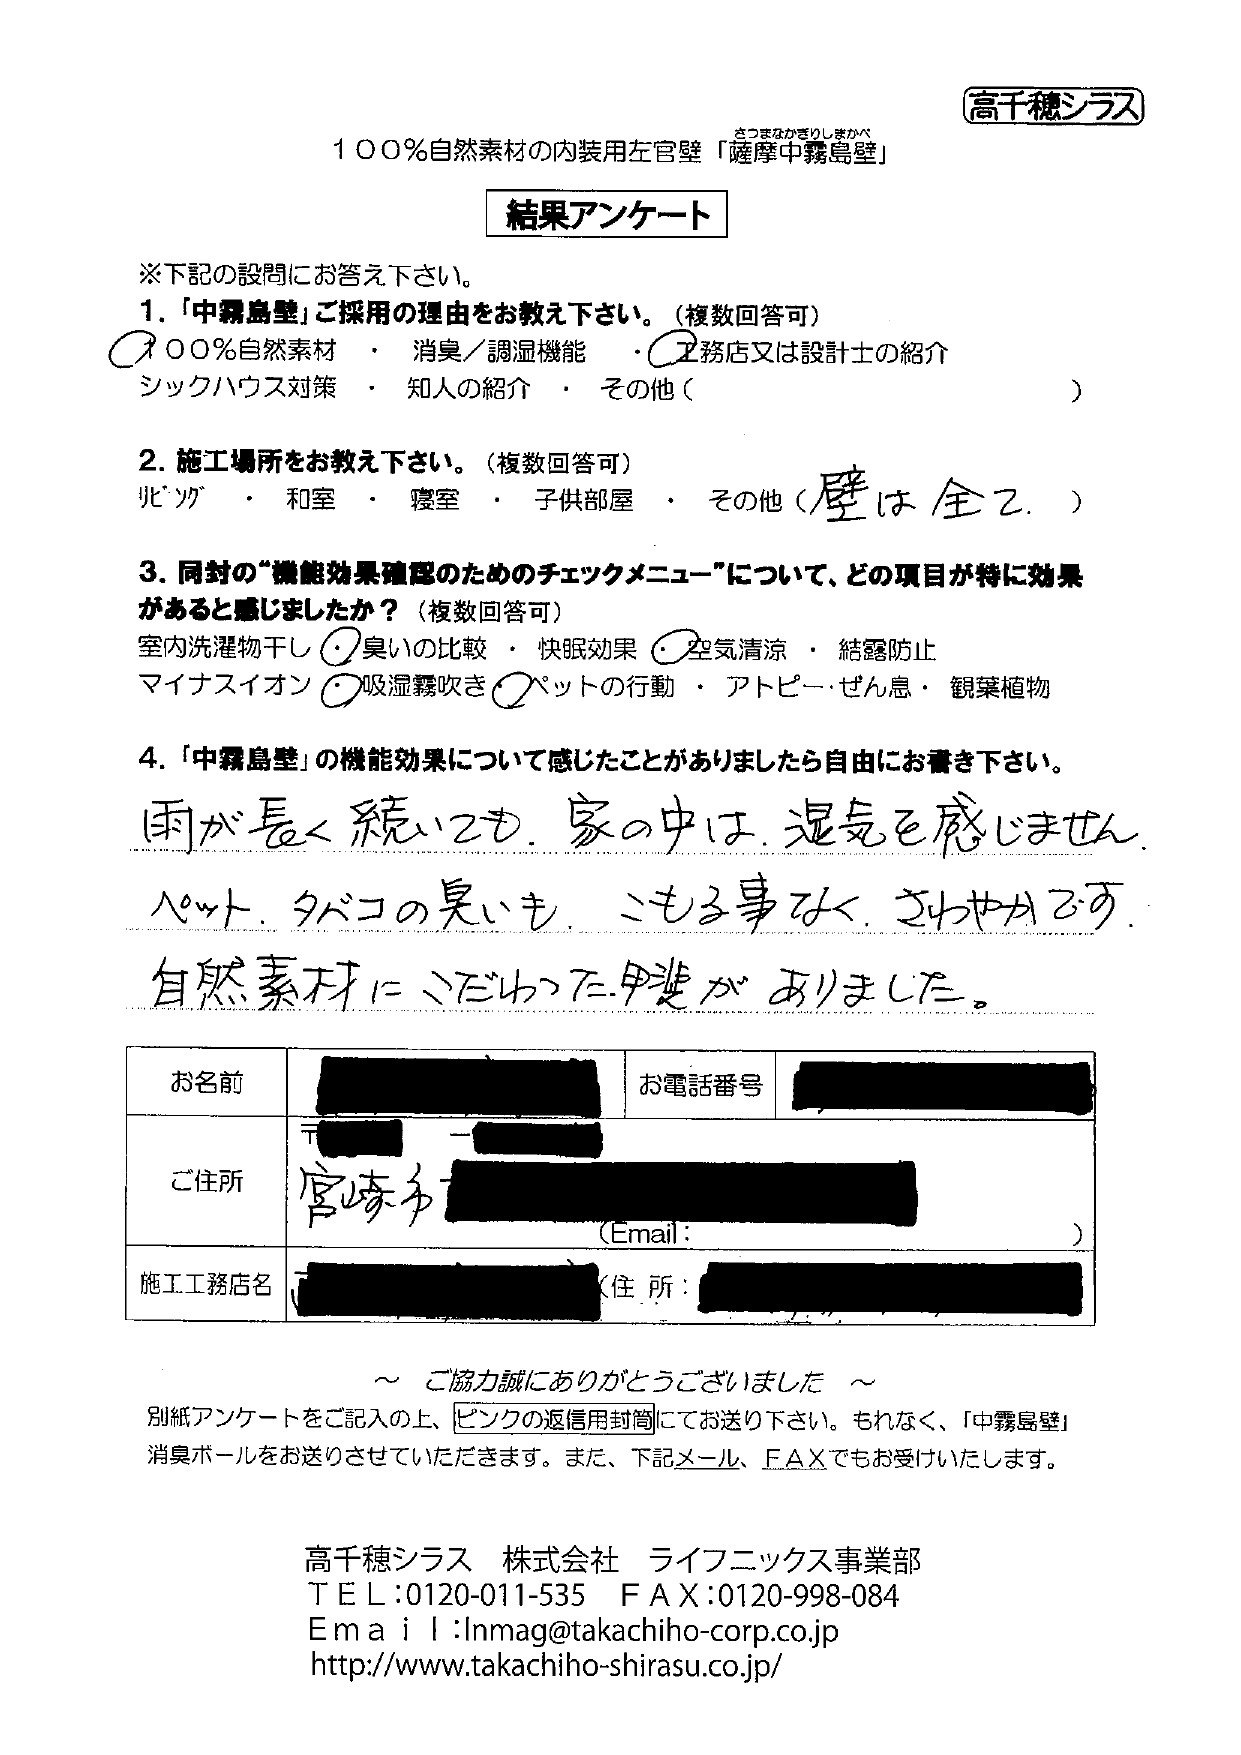 高千穂シラス
さつまなかぎりしまかべ
１００％自然素材の内装用左官壁「薩摩中霧島壁」
結果アンケート
※下記の設問にお答え下さい。
1.「中霧島壁」ご採用の理由をお教え下さい。（複数回答可）
１００％自然素材 ・ 消臭／調湿機能 ・ 工務店又は設計士の紹介
シックハウス対策 ・ 知人の紹介 ・ その他（ ）
2. 施工場所をお教え下さい。（複数回答可）
ﾘﾋﾞﾝｸﾞ ・ 和室 ・ 寝室 ・ 子供部屋 ・ その他（壁は全て. ）
3. 同封の“機能効果確認のためのチェックメニュー”について、どの項目が特に効果
があると感じましたか？（複数回答可）
室内洗濯物干し ・ 臭いの比較 ・ 快眠効果 ・ 空気清涼 ・ 結露防止
マイナスイオン ・ 吸湿霧吹き ・ ペットの行動 ・ アトピー・ぜん息 ・ 観葉植物
4.「中霧島壁」の機能効果について感じたことがありましたら自由にお書き下さい。
雨が長く続いても. 家の中は. 湿気を感じません.
ペット. タバコの臭いも. こもる事なく. さわやかです.
自然素材にこだわった.甲斐がありました。
お名前 お電話番号
〒 －
ご住所 宮崎市
（Email： ）
施工工務店名 （住 所：
～ ご協力誠にありがとうございました ～
別紙アンケートをご記入の上、ピンクの返信用封筒にてお送り下さい。もれなく、「中霧島壁」
消臭ボールをお送りさせていただきます。また、下記メール、ＦＡＸでもお受けいたします。
高千穂シラス 株式会社 ライフニックス事業部
ＴＥＬ：0120-011-535 ＦＡＸ：0120-998-084
Ｅｍａｉｌ：lnmag@takachiho-corp.co.jp
http://www.takachiho-shirasu.co.jp/